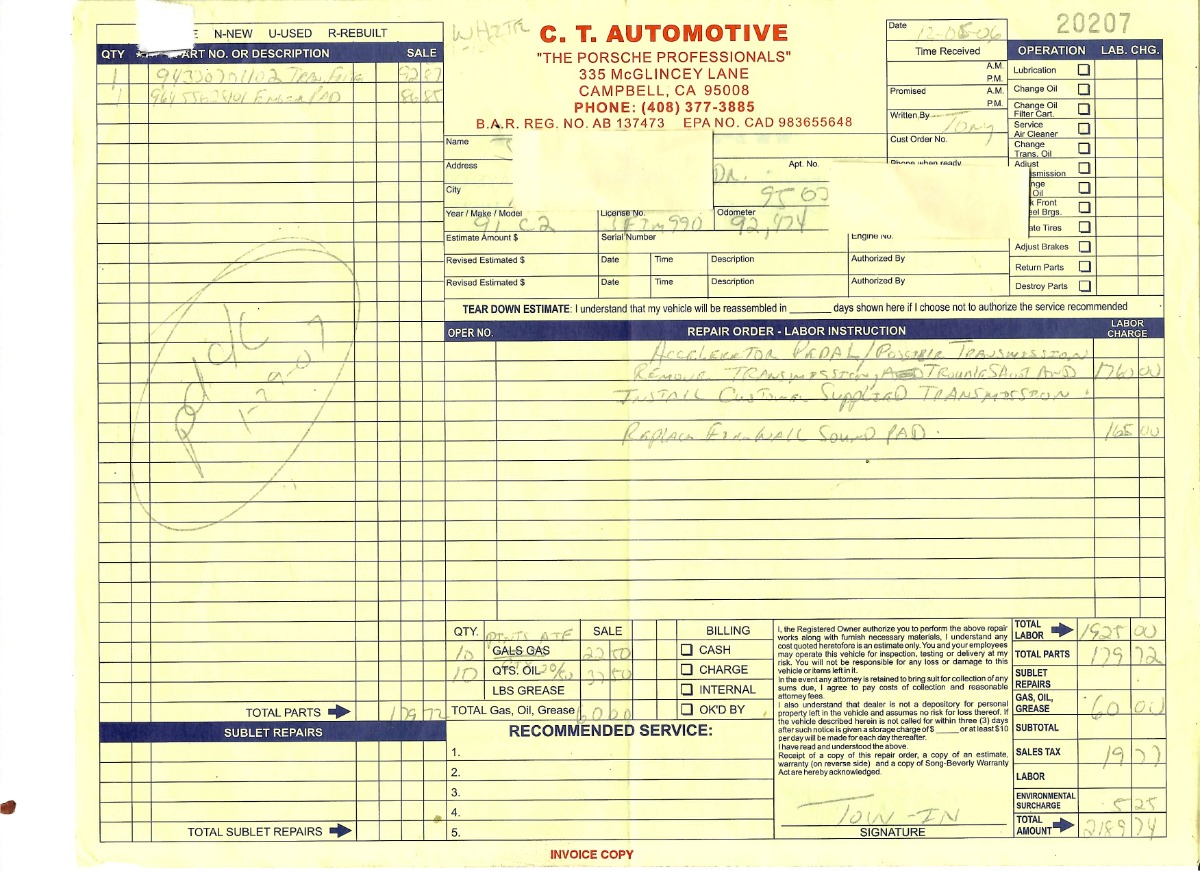 N-NEW U-USED R-REBUILT
QTY PART NO. OR DESCRIPTION SALE
1 92 87
1 PAD 86 85
paid ck
1-29-07
TOTAL PARTS 179 72
SUBLET REPAIRS
TOTAL SUBLET REPAIRS
WHITE
C. T. AUTOMOTIVE
"THE PORSCHE PROFESSIONALS"
335 McGLINCEY LANE
CAMPBELL, CA 95008
PHONE: (408) 377-3885
B.A.R. REG. NO. AB 137473 EPA NO. CAD 983655648
Date 12-05-06
Time Received
A.M.
P.M.
Promised A.M.
P.M.
Written By Tony
Cust Order No.
Phone when ready
20207
OPERATION LAB. CHG.
Lubrication
Change Oil
Change Oil
Filter Cart.
Service
Air Cleaner
Change
Trans. Oil
Adjust
smission
nge
Oil
k Front
eel Brgs.
ate Tires
Adjust Brakes
Return Parts
Destroy Parts
Name
Address Apt. No.
DR.
City
Year / Make / Model License No. Odometer
91 C2 92,474
Estimate Amount $ Serial Number Engine No.
Revised Estimated $ Date Time Description Authorized By
Revised Estimated $ Date Time Description Authorized By
TEAR DOWN ESTIMATE: I understand that my vehicle will be reassembled in ______ days shown here if I choose not to authorize the service recommended
OPER NO. REPAIR ORDER - LABOR INSTRUCTION LABOR CHARGE
ACCELERATOR PEDAL / POSSIBLE TRANSMISSION
REMOVE TRANSMISSION, TROUBLESHOOT AND 1760 00
INSTALL CUSTOMER SUPPLIED TRANSMISSION.
REPLACE FIREWALL SOUND PAD. 165 00
QTY. SALE BILLING
PINTS ATF
10 GALS GAS 22 50 CASH
10 QTS. OIL 37 50 CHARGE
LBS GREASE INTERNAL
TOTAL Gas, Oil, Grease 60 00 OK'D BY
RECOMMENDED SERVICE:
1.
2.
3.
4.
5.
I, the Registered Owner authorize you to perform the above repair
works along with furnish necessary materials, I understand any
cost quoted heretofore is an estimate only. You and your employees
may operate this vehicle for inspection, testing or delivery at my
risk. You will not be responsible for any loss or damage to this
vehicle or items left in it.
In the event any attorney is retained to bring suit for collection of any
sums due, I agree to pay costs of collection and reasonable
attorney fees.
I also understand that dealer is not a depository for personal
property left in the vehicle and assumes no risk for loss thereof. If
the vehicle described herein is not called for within three (3) days
after such notice is given a storage charge of $ _____ or at least $10
per day will be made for each day thereafter.
I have read and understood the above.
Receipt of a copy of this repair order, a copy of an estimate,
warranty (on reverse side) and a copy of Song-Beverly Warranty
Act are hereby acknowledged.
TOW-IN
SIGNATURE
TOTAL LABOR 1925 00
TOTAL PARTS 179 72
SUBLET REPAIRS
GAS, OIL, GREASE 60 00
SUBTOTAL
SALES TAX 19 77
LABOR
ENVIRONMENTAL SURCHARGE 5 25
TOTAL AMOUNT 2189 74
INVOICE COPY